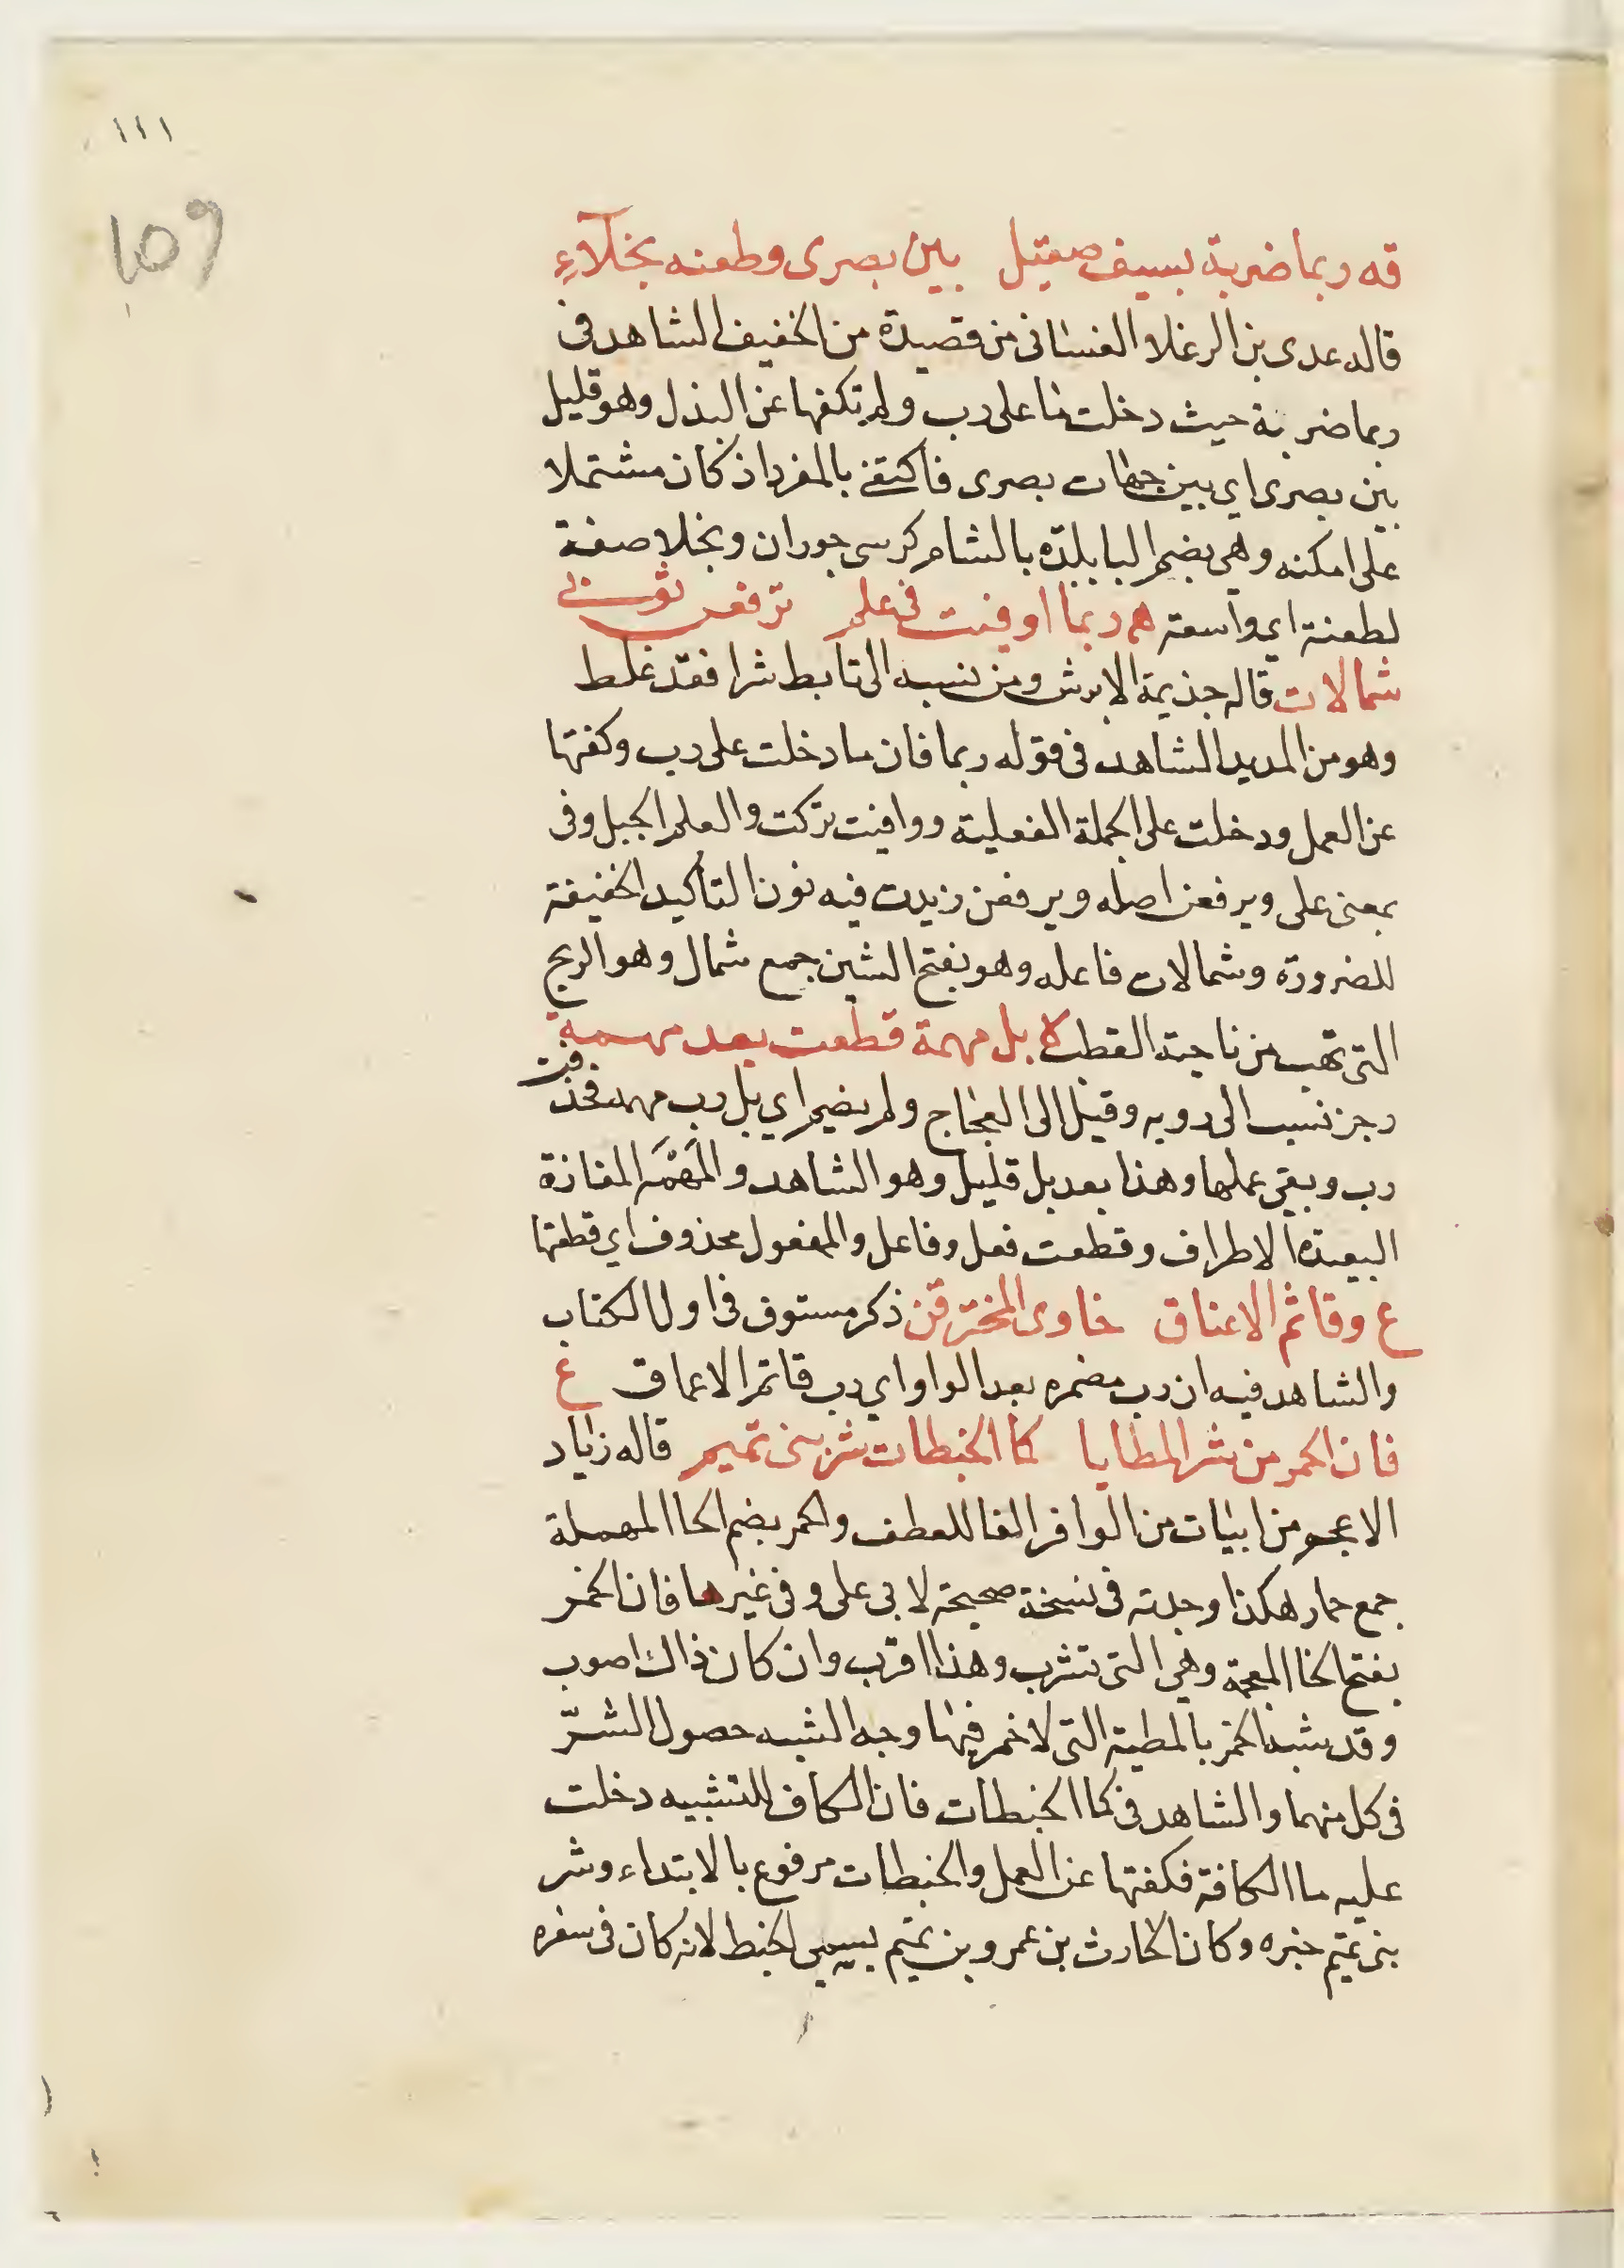 ١١١
١٥٩
قه ربما ضربة بسيف صقيل بين بصرى وطعنه بخلآءِ
قاله عدى بن الرغلا والغسانى من قصيدة من الخفيف الشاهد فى
ربما ضربة حيث دخلت ما على رب ولم تكفها عن البذل وهو قليل
بين بصرى اي بين جهات بصرى فاكتفى بالمفرد اذ كان مشتملا
على امكنه وهى بضم البا بلدة بالشام كرسى حوران وبخلا صفة
لطعنة اي واسعة هم ربما اوفيت فى علم ترفعن ثوبى
شمالات قاله جذيمة الابرش ومن نسبه الى تابط شرا فقد غلط
وهو من المديد الشاهد فى قوله ربما فان ما دخلت على رب وكفتها
عن العمل ودخلت على الجملة الفعلية ووافيت تركت والعلم الجبل وفى
بمعنى على ويرفعن اصله ويرفعن زيدت فيه نون التأكيد الخفيفة
للضرورة وشمالات فاعله وهو بفتح الشين جمع شمال وهو الريح
التى تهب من ناحية القطب كا بل مهمة قطعت بعد مهمة
رجز نسب الى روبه وقيل الى العجاج ولم يضم اي بل رب مهمه فحذفت
رب وبقى عملها وهذا بعد بل قليل وهو الشاهد والمَهْمَه المفازة
البعيدة الاطراف وقطعت فعل وفاعل والمفعول محذوف اي قطعتها
ع وقاتم الاعناق خاوى المخترقن ذكر مستوف فى اول الكتاب
والشاهد فيه ان رب مضمره بعد الواو اي رب قاتم الاعماق ع
فان الحمر من شر المطايا كما الخبطات شر بنى تميم قاله زياد
الاعجم من ابيات من الوافر الفا للعطف والحمر بضم الحا المهملة
جمع حمار هكذا وجدته فى نسخة صحيحة لابى على وفى غيرها فان الخمر
بفتح الخا المعجمة وهى التى تشرب وهذا اقرب وان كان ذاك اصوب
وقد شبه الخمر بالمطية التى لا خمر فيها وجه الشبه حصول الشرّ
فى كل منهما والشاهد فى كما الخبطات فان الكاف للتشبيه دخلت
عليه ما الكافة فكفتها عن العمل والخبطات مرفوع بالابتداء وشر
بنى تميم خبره وكان الحارث بن عمرو بن تميم يسمى الخبط لانه كان فى سفره